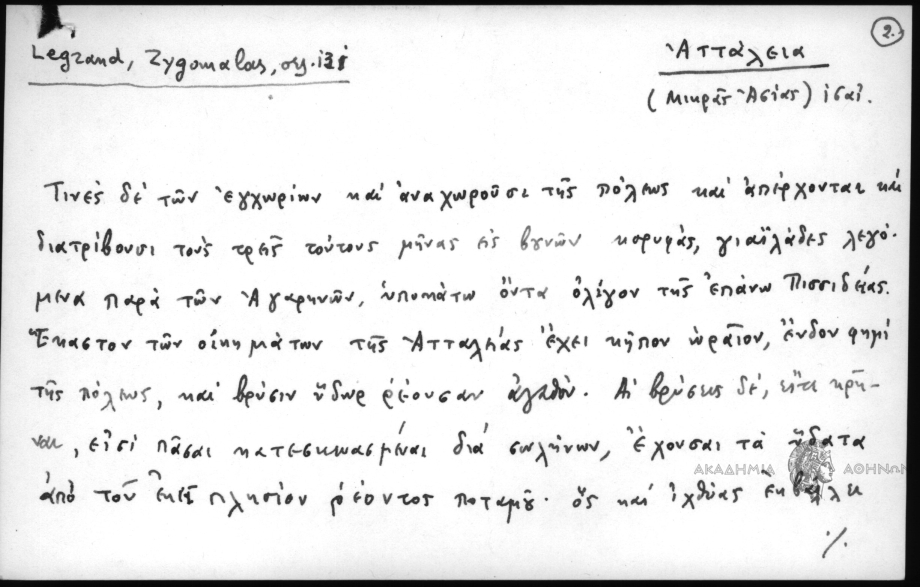 2.
Legrand, Zygomalas, σγ. 131
Ἀττάλεια
(Μικρᾶς Ἀσίας)
Τινὲς δὲ τῶν ἐγχωρίων καὶ ἀναχωροῦσι τῆς πόλεως καὶ ἀπέρχονται καὶ
διατρίβουσι τοὺς τρεῖς τούτους μῆνας εἰς βουνῶν κορυφάς, γιαϊλάδες λεγό-
μενα παρὰ τῶν Ἀγαρηνῶν, ὑποκάτω ὄντα ὀλίγον τῆς ἐπάνω Πισσιδείας.
Ἕκαστον τῶν οἰκημάτων τῆς Ἀτταλείας ἔχει κῆπον ὡραῖον, ἔνδον φημὶ
τῆς πόλεως, καὶ βρύσιν ὕδωρ ῥέουσαν ἀγαθόν. Αἱ βρύσεις δέ, εἴτε κρῆ-
ναι, εἰσὶ πᾶσαι κατεσκευασμέναι διὰ σωλήνων, ἔχουσαι τὰ ὕδατα
ΑΚΑΔΗΜΙΑ ΑΘΗΝΩΝ
ἀπὸ τοῦ ἐκεῖ πλησίον ῥέοντος ποταμοῦ· ὃς καὶ ἰχθύας ἐκβάλλει
./.